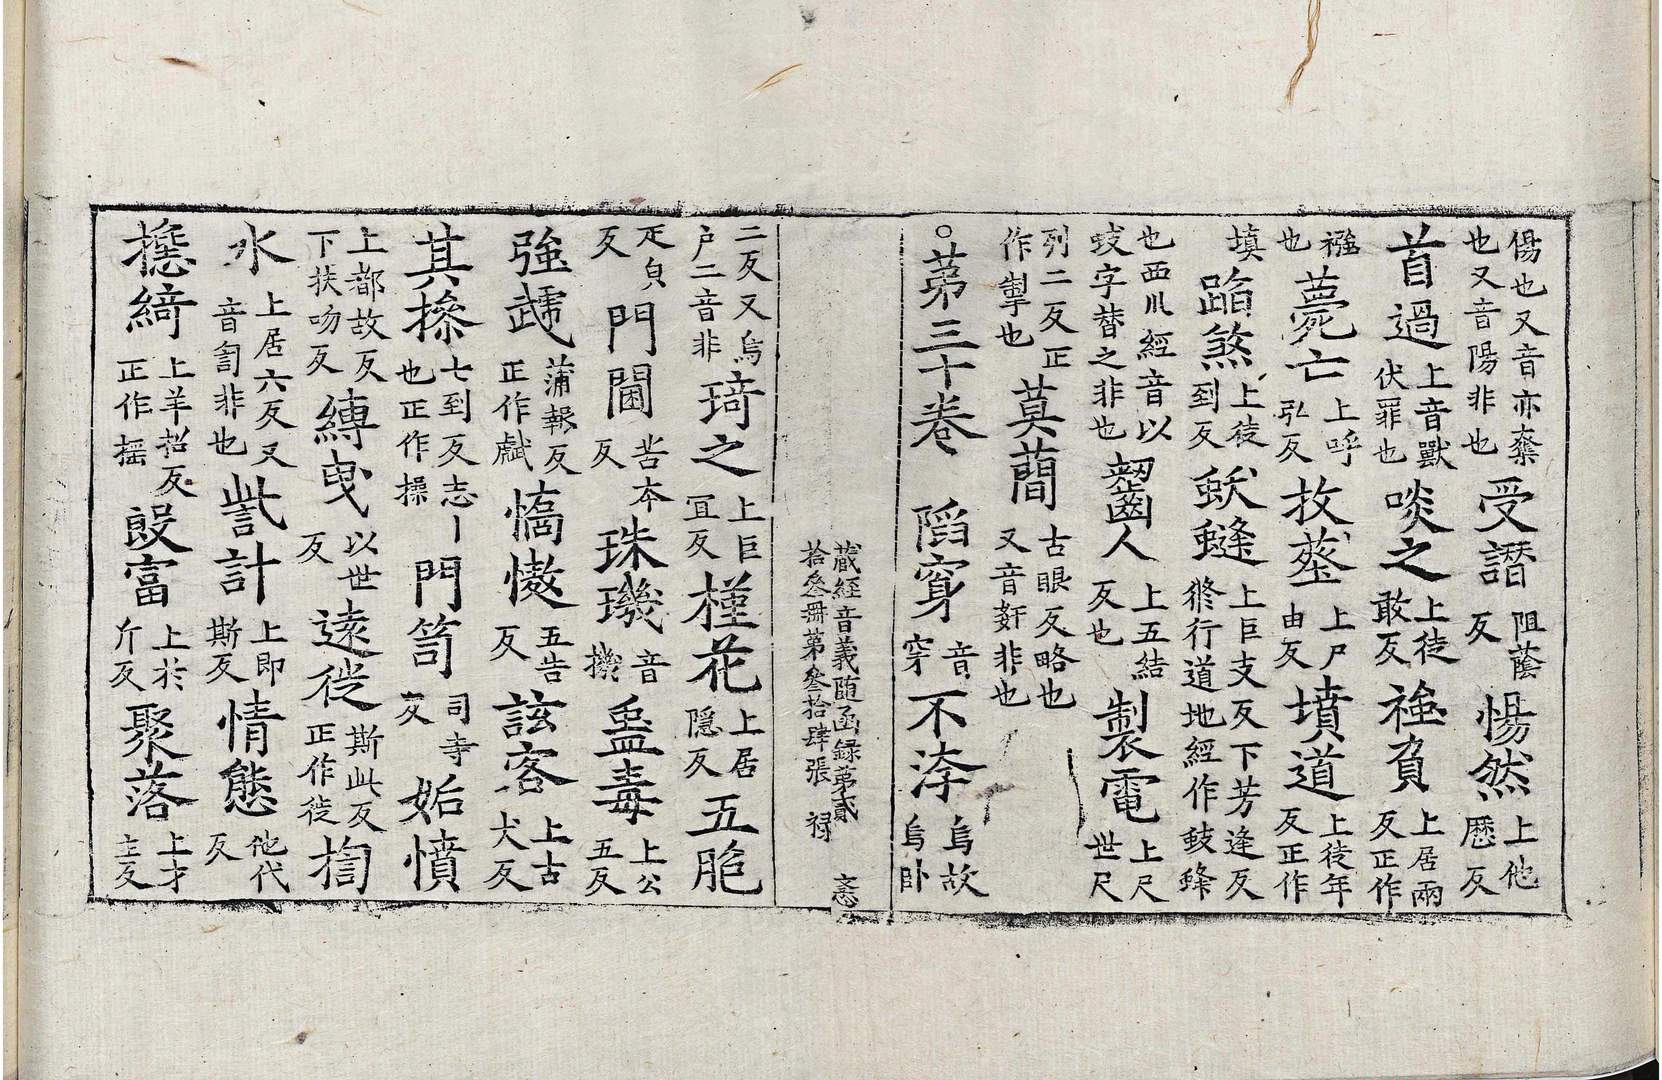 傷也又音亦棄也又音陽非也受譖阻蔭反惕然上他歷反
首過上音獸伏罪也啖之上徒敢反襁負上居兩反正作
襁也薨亡上呼弘反牧蓥上尸由反墳道上徒年反正作
填蹈煞上徒到反蚑蜂上巨支反下芳逢反修行道地經作蚑蜂
也西川經音以蚑字替之非也齧人上五結反也製電上尺世尺
列二反正作掣也莫蕳古眼反略也又音姧非也
○第三十卷 陷穽音穽不洿烏故烏卧
藏經音義随函録第貳拾叄冊第叄拾肆張 禄 惠
二反又烏户二音非琦之上巨冝反槿花上居隱反五脃
疋皃反門閫苦本反珠璣音機蠱毒上公五反
強虣蒲報反正作虣憍慠五告反詃客上古犬反
其摻七到反志丨也正作操門笥司寺反姤憤
上都故反下扶吻反縛曳以世反逺徙斯此反正作徙掬
水上居六反又音匐非也訾計上即斯反情態他代反
摇綺上羊招反正作摇殷富上於斤反聚落上才主反